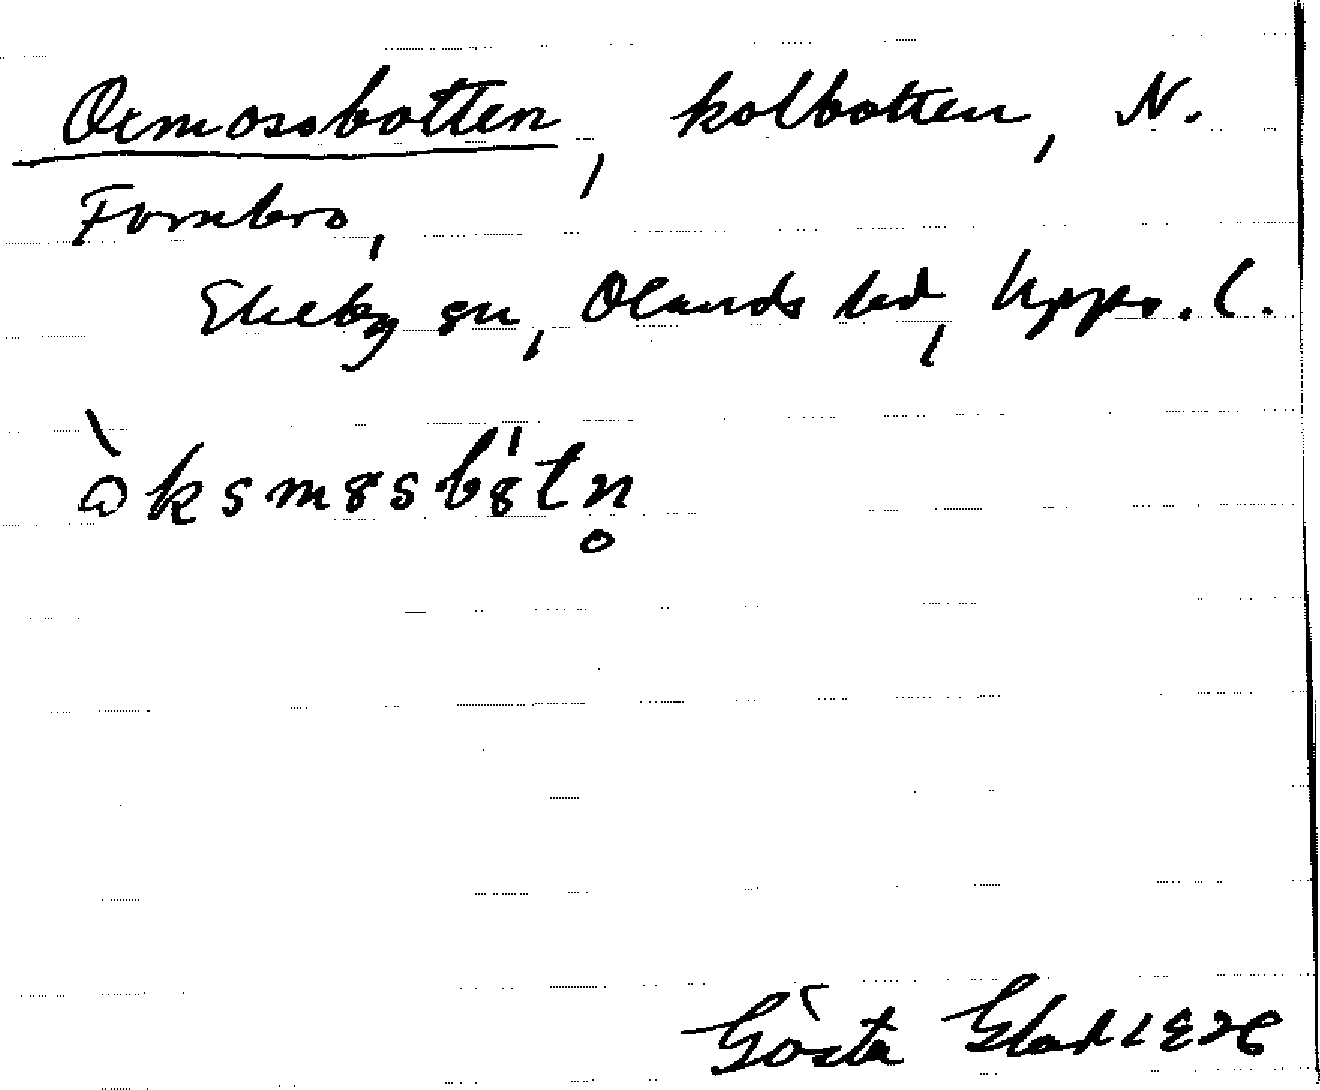 Oxmossbotten, kolbotten, N.
Fornbro,
Ekeby sn, Olands hd, Upps. l.
òksmɵsbɵ̍tn̥
Gösta